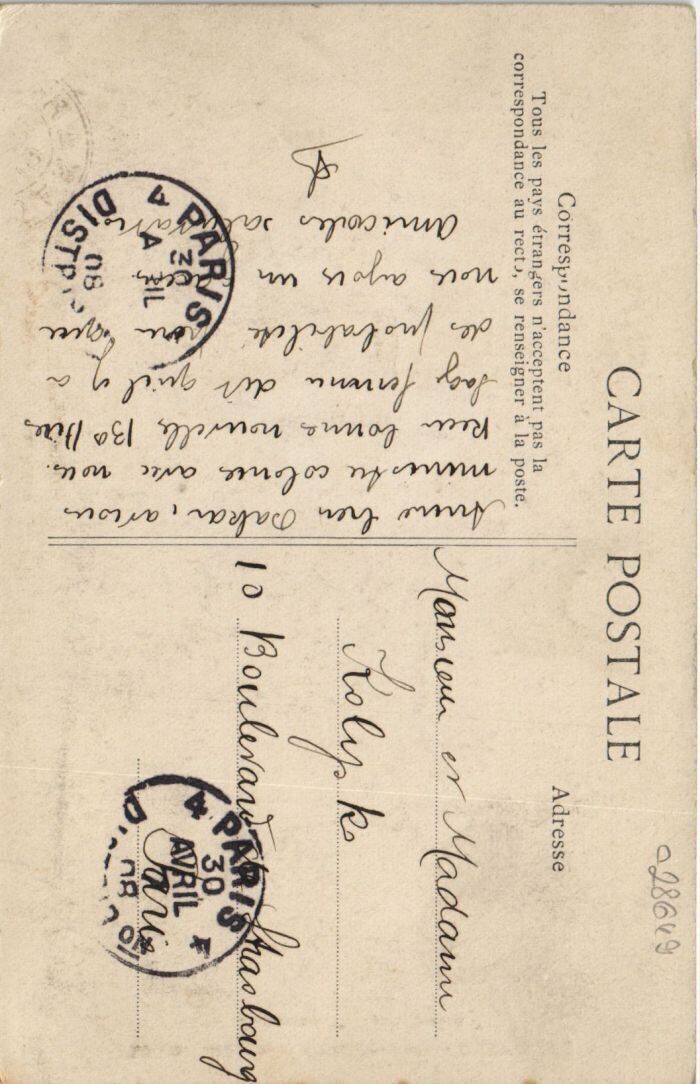 CARTE POSTALE
Correspondance
Tous les pays étrangers n'acceptent pas la
correspondance au recto, se renseigner à la poste.
Adresse
Arrivé hier Dakar, avions
ministre colonies avec nous.
Reçu bonne nouvelle
sage femme dit qu'il y a
des probabilité pour que
nous ayons un
Amicales salutations
Monsieur et Madame
Kolysko
10 Boulevard Strasbourg
Paris
PARIS
30
AVRIL
08
DISTRIB
4
PARIS
30
AVRIL
08
4
028649